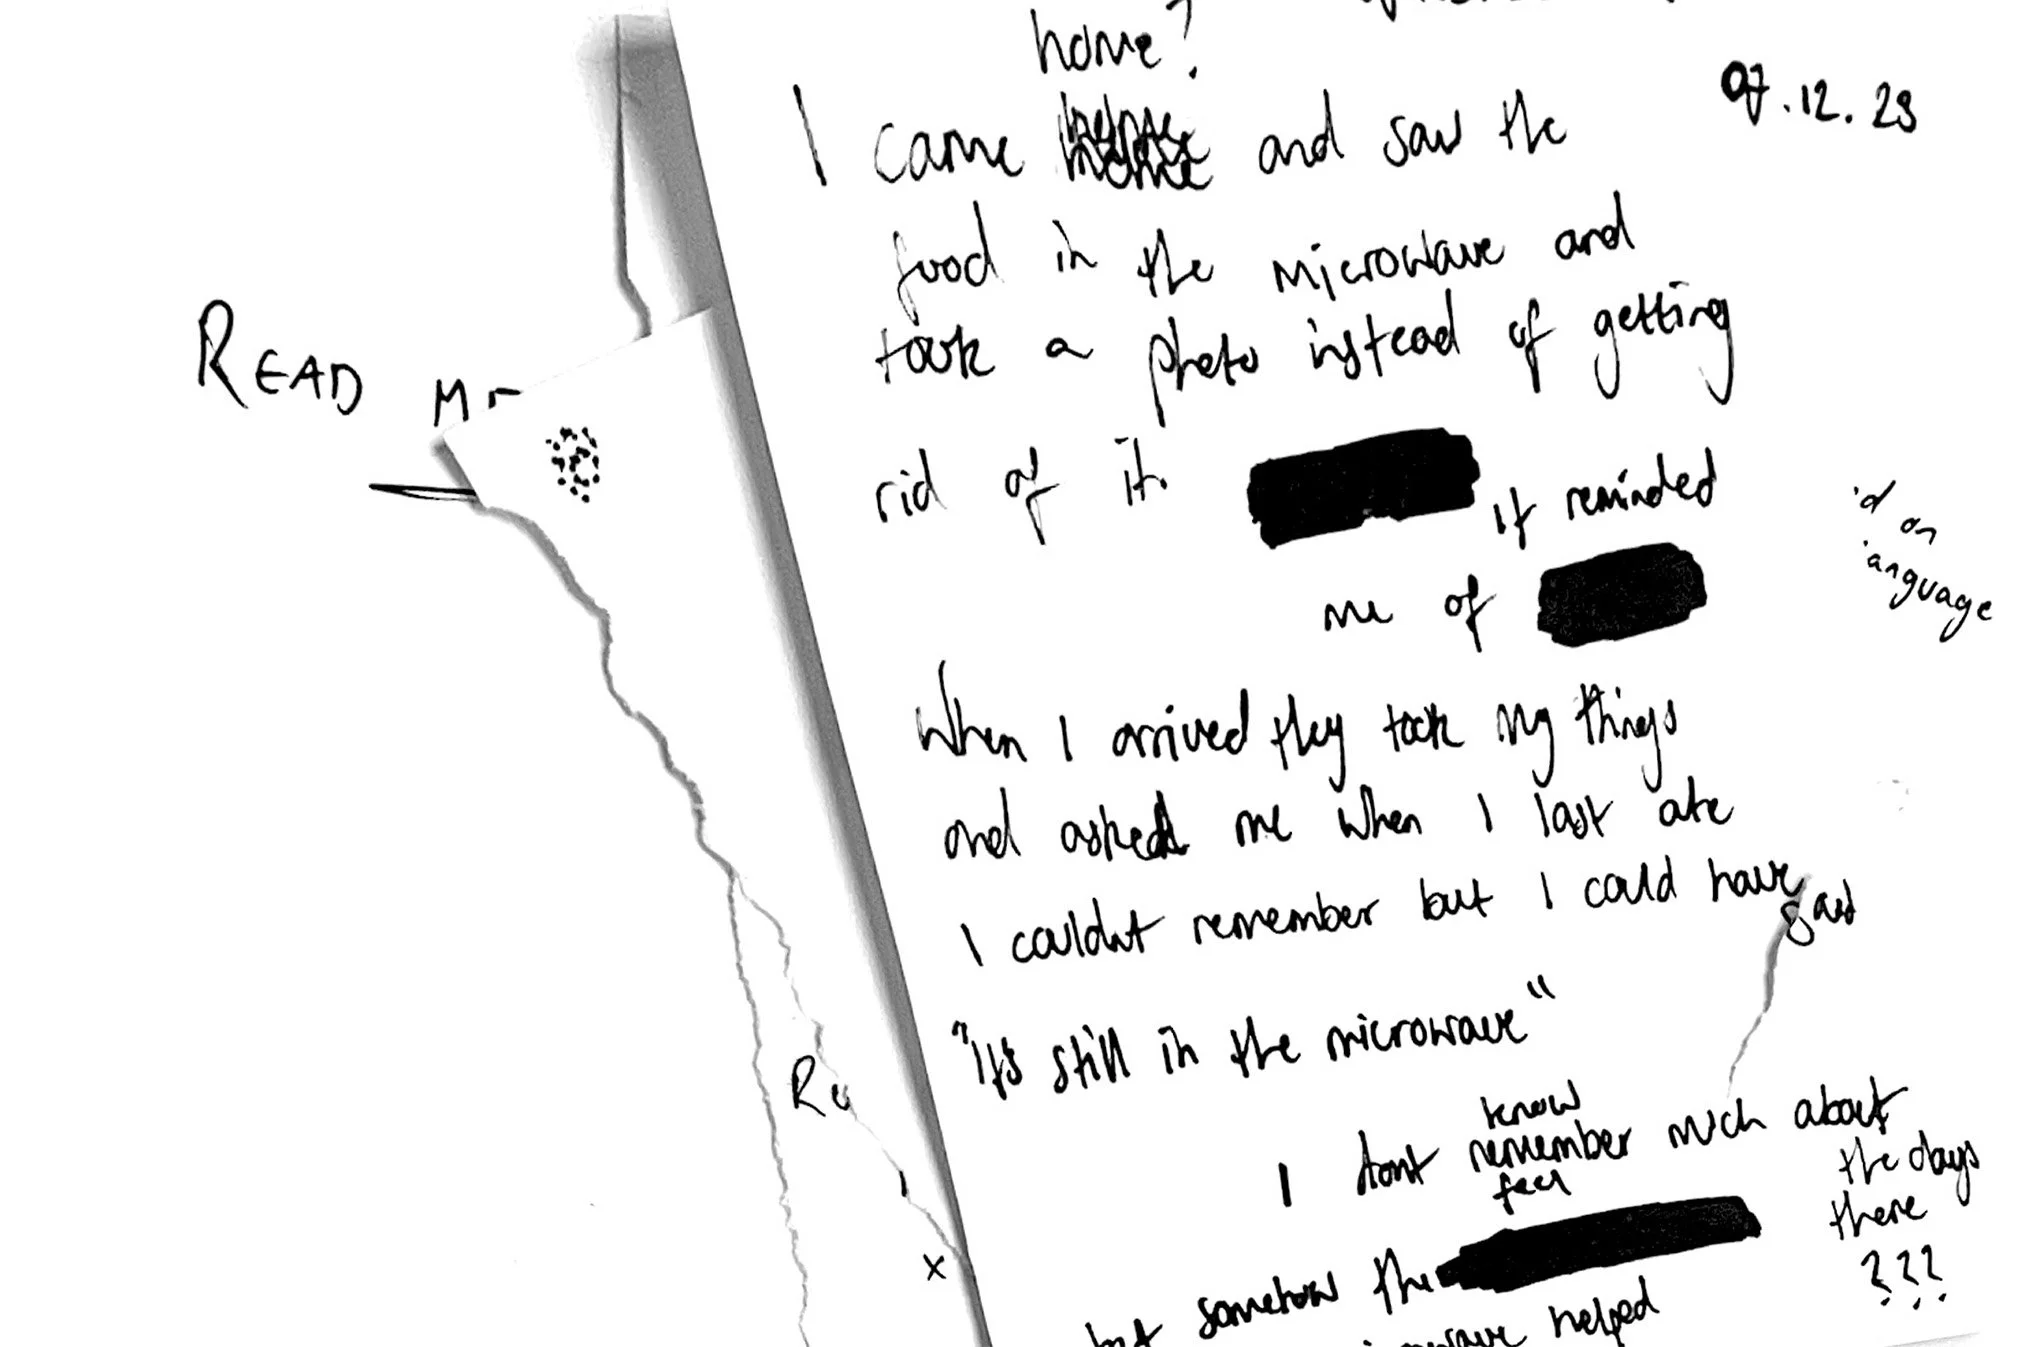 home?
07.12.23
I came and saw the
food in the microwave and
took a photo instead of getting
rid of it. it reminded
me of
READ
on
When I arrived they took my things
and asked me when I last ate
I couldnt remember but I could have said
"It's still in the microwave"
know
I dont remember much about
feel
the days
there
???
but somehow the
helped
Ru
x